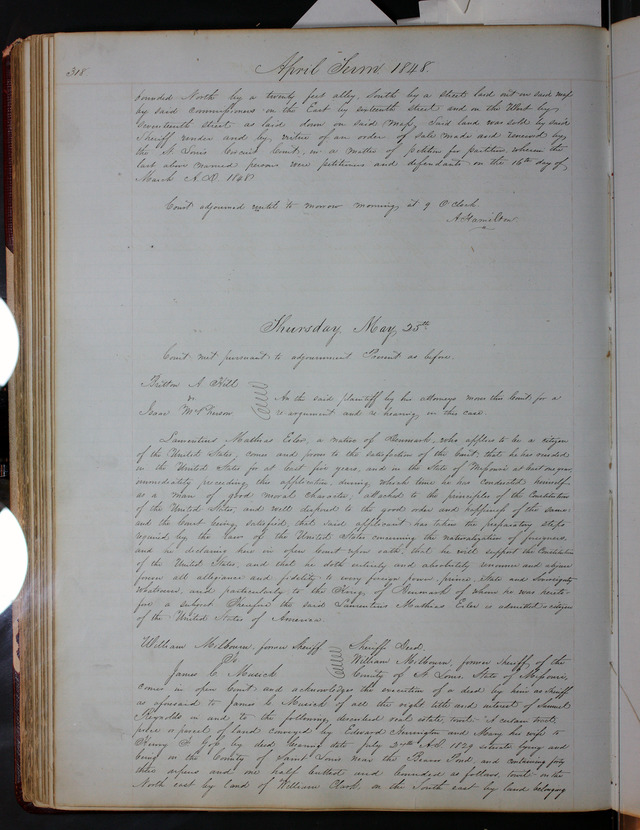 318
April Term 1848.
bounded North by a twenty feet alley, South by a street laid out on said map
by said Commissioners on the East by sixteenth street and on the West by
Seventeenth street as laid down on said Map, Said land was sold by said
Sheriff under and by virtue of an order of sale made and renewed by
the St Louis Circuit Court, in a matter of petition for partition, wherein the
last above named persons were petitioners and defendants on the 16th day of
March A.D. 1848
Court adjourned until to morrow morning at 9 O'Clock
A Hamilton
Thursday May 25th
Court met pursuant to adjournment Present as before.
Britton A Hill
v
Isaac McPherson
As the said plaintiff by his attorneys moves this Court for a
re argument and re hearing in this case.
Laurentius Mathias Eiler, a native of Denmark, who applies to be a citizen
of the United States, comes and proves to the satisfaction of the Court, that he has resided
in the United States for at least five years, and in the State of Missouri at least one year
immediately preceding this application, during which time he has conducted himself
as a man of good moral character, attached to the principles of the Constitution
of the United States, and well disposed to the good order and happiness of the same:
and the Court being satisfied, that said applicant has taken the preparatory steps
required by the laws of the United States concerning the naturalization of foreigners,
and he declaring here in open Court upon oath, that he will support the Constitution
of the United States, and that he doth entirely and absolutely renounce and abjure
forever all allegiance and fidelity to every foreign power prince, State and Sovereignty
whatsoever, and particularly to the King of Denmark of whom he was hereto-
fore a subject. Therefore the said Laurentius Mathias Eiler is admitted a citizen
of the United States of America.
William Milburn, former Sheriff
To
James C. Musick
Sheriffs Deed.
William Milburn, former Sheriff, of the
County of St Louis, State of Missouri,
comes in open Court and acknowledges the execution of a deed by him as Sheriff
as aforesaid to James C Musick of all the right title and interest of Samuel
Reynolds in and to the following, described real estate, towit: A certain tract
piece or parcel of land conveyed by Edward and Mary his wife to
Henry S by deed bearing date July 27th A.D 1829 situate lying and
being in the County of Saint Louis near the Pond, and containing forty
three arpens and one half butted and bounded as follows towit on the
North east by land of William Clark, on the South east by land belonging